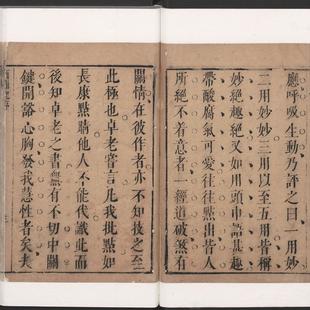 應呼吸生動乃評之曰一用妙
二用妙妙三用以至五用皆稱
妙絶趣絶又如用頭巾語甚趣
帶酸腐氣可愛往往點出皆人
所絶不着意者一經道破煞有
關情在彼作者亦不知技之至
此極也卓老嘗言凡我批點如
長康點睛他人不能代識此而
後知卓老之書無有不切中關
鍵開豁心胸發我慧性者矣夫